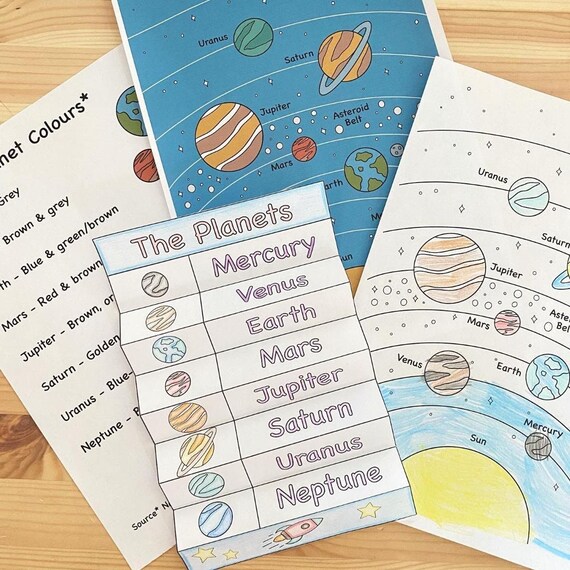 net Colours*
Grey
Brown & grey
th - Blue & green/brown
Mars - Red & brown
Jupiter - Brown, or
Saturn - Golden
Uranus - Blue-
Neptune - B
Source* N
Uranus
Saturn
Jupiter
Asteroid
Belt
Mars
Earth
The Planets
Mercury
Venus
Earth
Mars
Jupiter
Saturn
Uranus
Neptune
Uranus
Saturn
Jupiter
Aste
Belt
Mars
Venus
Earth
Mercury
Sun